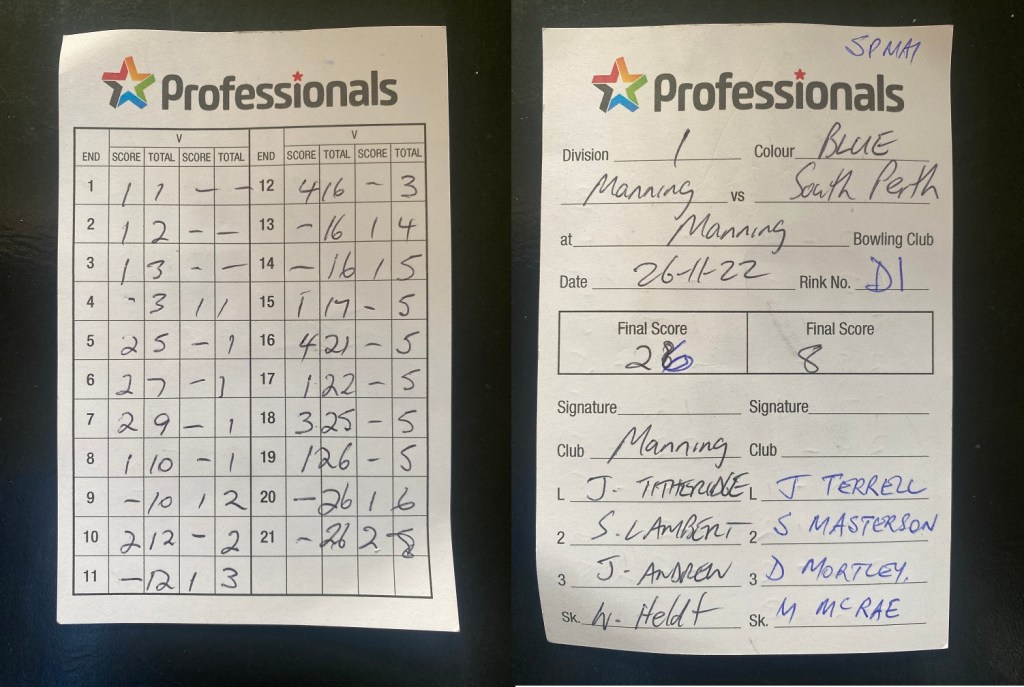 Professionals
V V
END SCORE TOTAL SCORE TOTAL END SCORE TOTAL SCORE TOTAL
1 1 1 - - 12 4 16 - 3
2 1 2 - - 13 - 16 1 4
3 1 3 - - 14 - 16 1 5
4 - 3 1 1 15 1 17 - 5
5 2 5 - 1 16 4 21 - 5
6 2 7 - 1 17 1 22 - 5
7 2 9 - 1 18 3 25 - 5
8 1 10 - 1 19 1 26 - 5
9 - 10 1 2 20 - 26 1 6
10 2 12 - 2 21 - 26 2 8
11 - 12 1 3
SPMA1
Professionals
Division 1 Colour BLUE
Manning vs South Perth
at Manning Bowling Club
Date 26-11-22 Rink No. D1
Final Score Final Score
26 8
Signature Signature
Club Manning Club
L J. TITHERIDGE L J TERRELL
2 S. LAMBERT 2 S MASTERSON
3 J. ANDREW 3 D MORTLEY.
Sk. W. Heldt Sk. M MCRAE